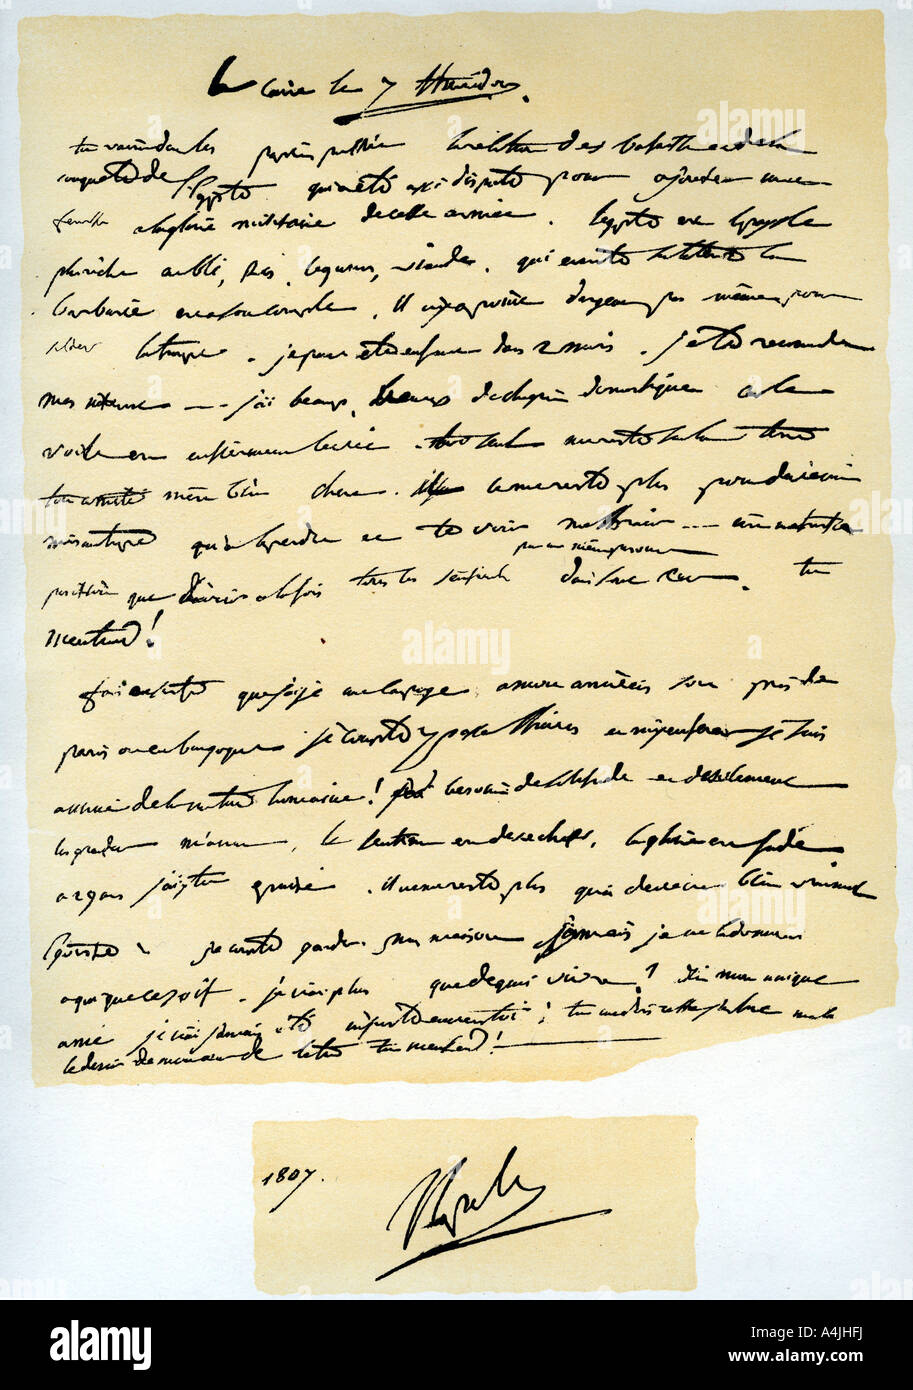 le Caire le 7 thermidor.
tu verras dans les papiers publics la relation des batailles et de la
conquete de l'Egypte qui a été assé disputé pour ajouter une
feuille a la gloire militaire de cette armée. l'egypte est le pays le
plus riche en blé, ris, legumes, viandes, qui existe sur la terre la
barbarie est a son comble. Il n'y a point d'argent pas même pour
solder la troupe. je peux être en france dans 2 mois. je te recomande
mes interets — j'ai beaucoup, beaucoup de chagrin domestique car le
voile est entierement levée. toi seul me reste sur la terre
ton amitié m'est bien chere. il ne me reste plus pour devenir
misantrope qu'a te perdre et te voir me trahir --- c'est une triste
par une même personne
position que d'avoir a la fois tous les sentiments dans son cœur. tu
m'entend!
fais en sorte que j'aye une campagne a mon arrivée soit près de
paris ou en bourgogne je compte y passer l'hiver et m'y enfermer je suis
annuié de la nature humaine! j'ai besoin de solitude et d'isolement
les grandeurs m'ennuie, le sentiment est deseché, la gloire est fade
a 29 ans j'ai tout épuisé. il ne me reste plus qu'a devenir bien vraiment
egoiste! je compte garder ma maison jamais je ne la donnerai
a qui que ce soit. je n'ai plus que de quoi vivre! adieu mon unique
ami je n'ai jamais été injuste envers toi! tu me dois cette justice malgré
le desir de mon cœur de l'etre tu m'entend!
1807.
alamy
A4JHFJ
www.alamy.com